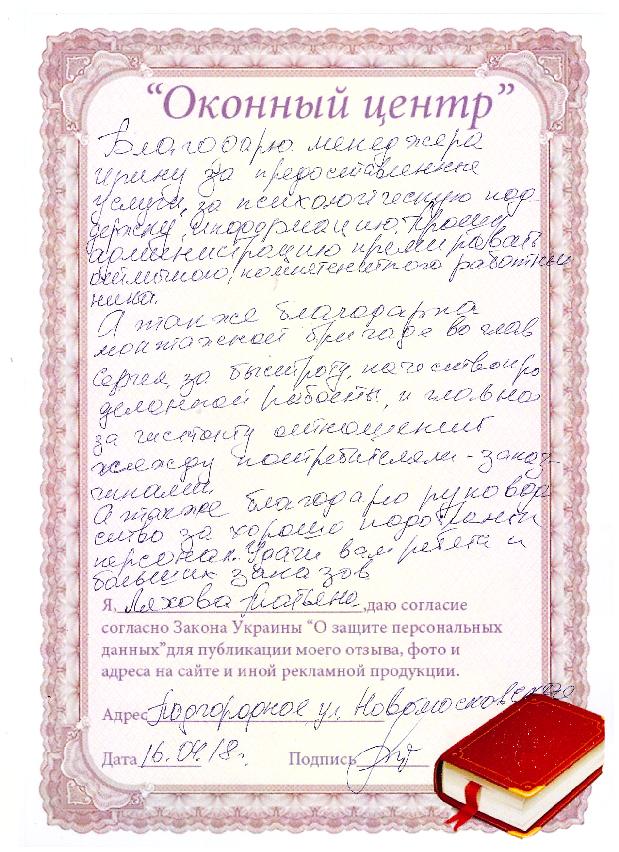 “Оконный центр”
Благодарю менеджера
Ирину за предоставленные
услуги, за психологическую под-
держку, информацию. Прошу
администрацию премировать
отличного, компетентного работни
ника.
А также благодарна
монтажной бригаде во глав
Сергея, за быстроту, качество про
деланной работы, и главное
за чистоту отношений
между потребителями - заказ-
чиками.
А также благодарю руковод
ство за хорошо подобранный
персонал. Удачи вам ребята и
больших заказов
Я, Ляхова Татьяна ,даю согласие
согласно Закона Украины “О защите персональных
данных”для публикации моего отзыва, фото и
адреса на сайте и иной рекламной продукции.
Адрес Подгородное ул. Новомосковская
Дата 16.04.18г. Подпись